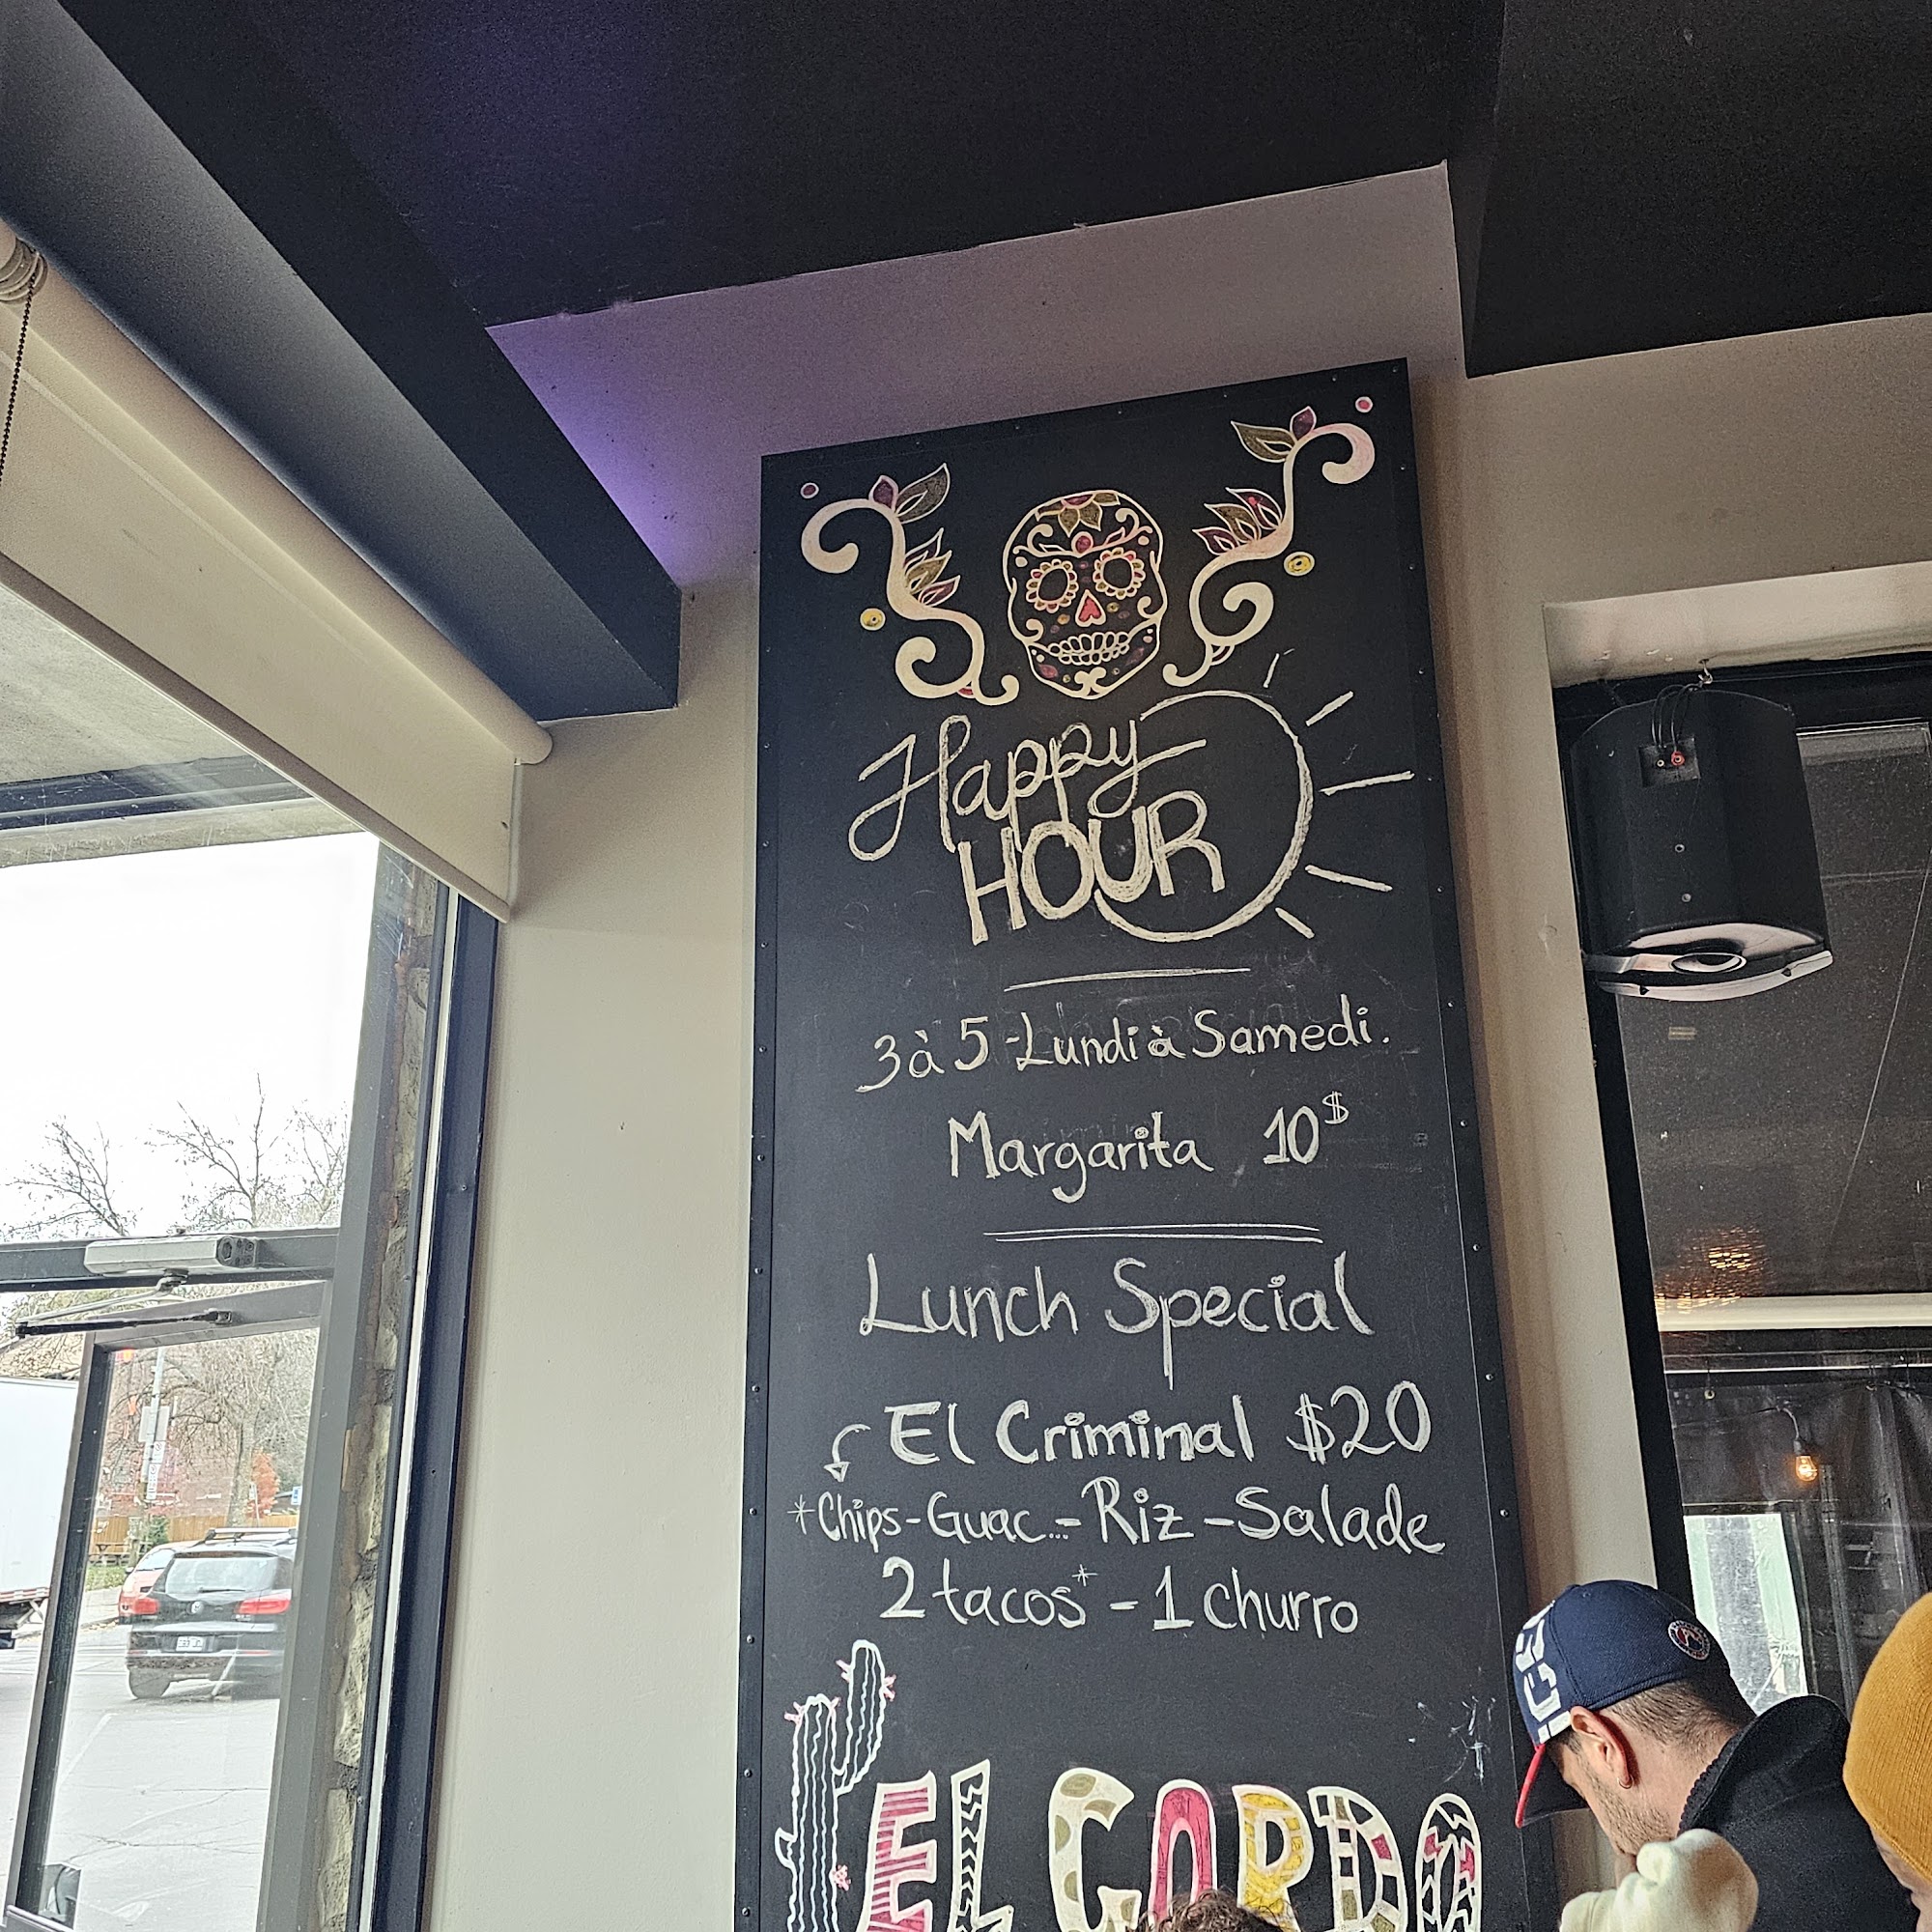 Happy
HOUR
3 à 5 - Lundi à Samedi.
Margarita 10$
Lunch Special
El Criminal $20
*Chips - Guac... - Riz - Salade
2 tacos* - 1 churro
EL GORDO